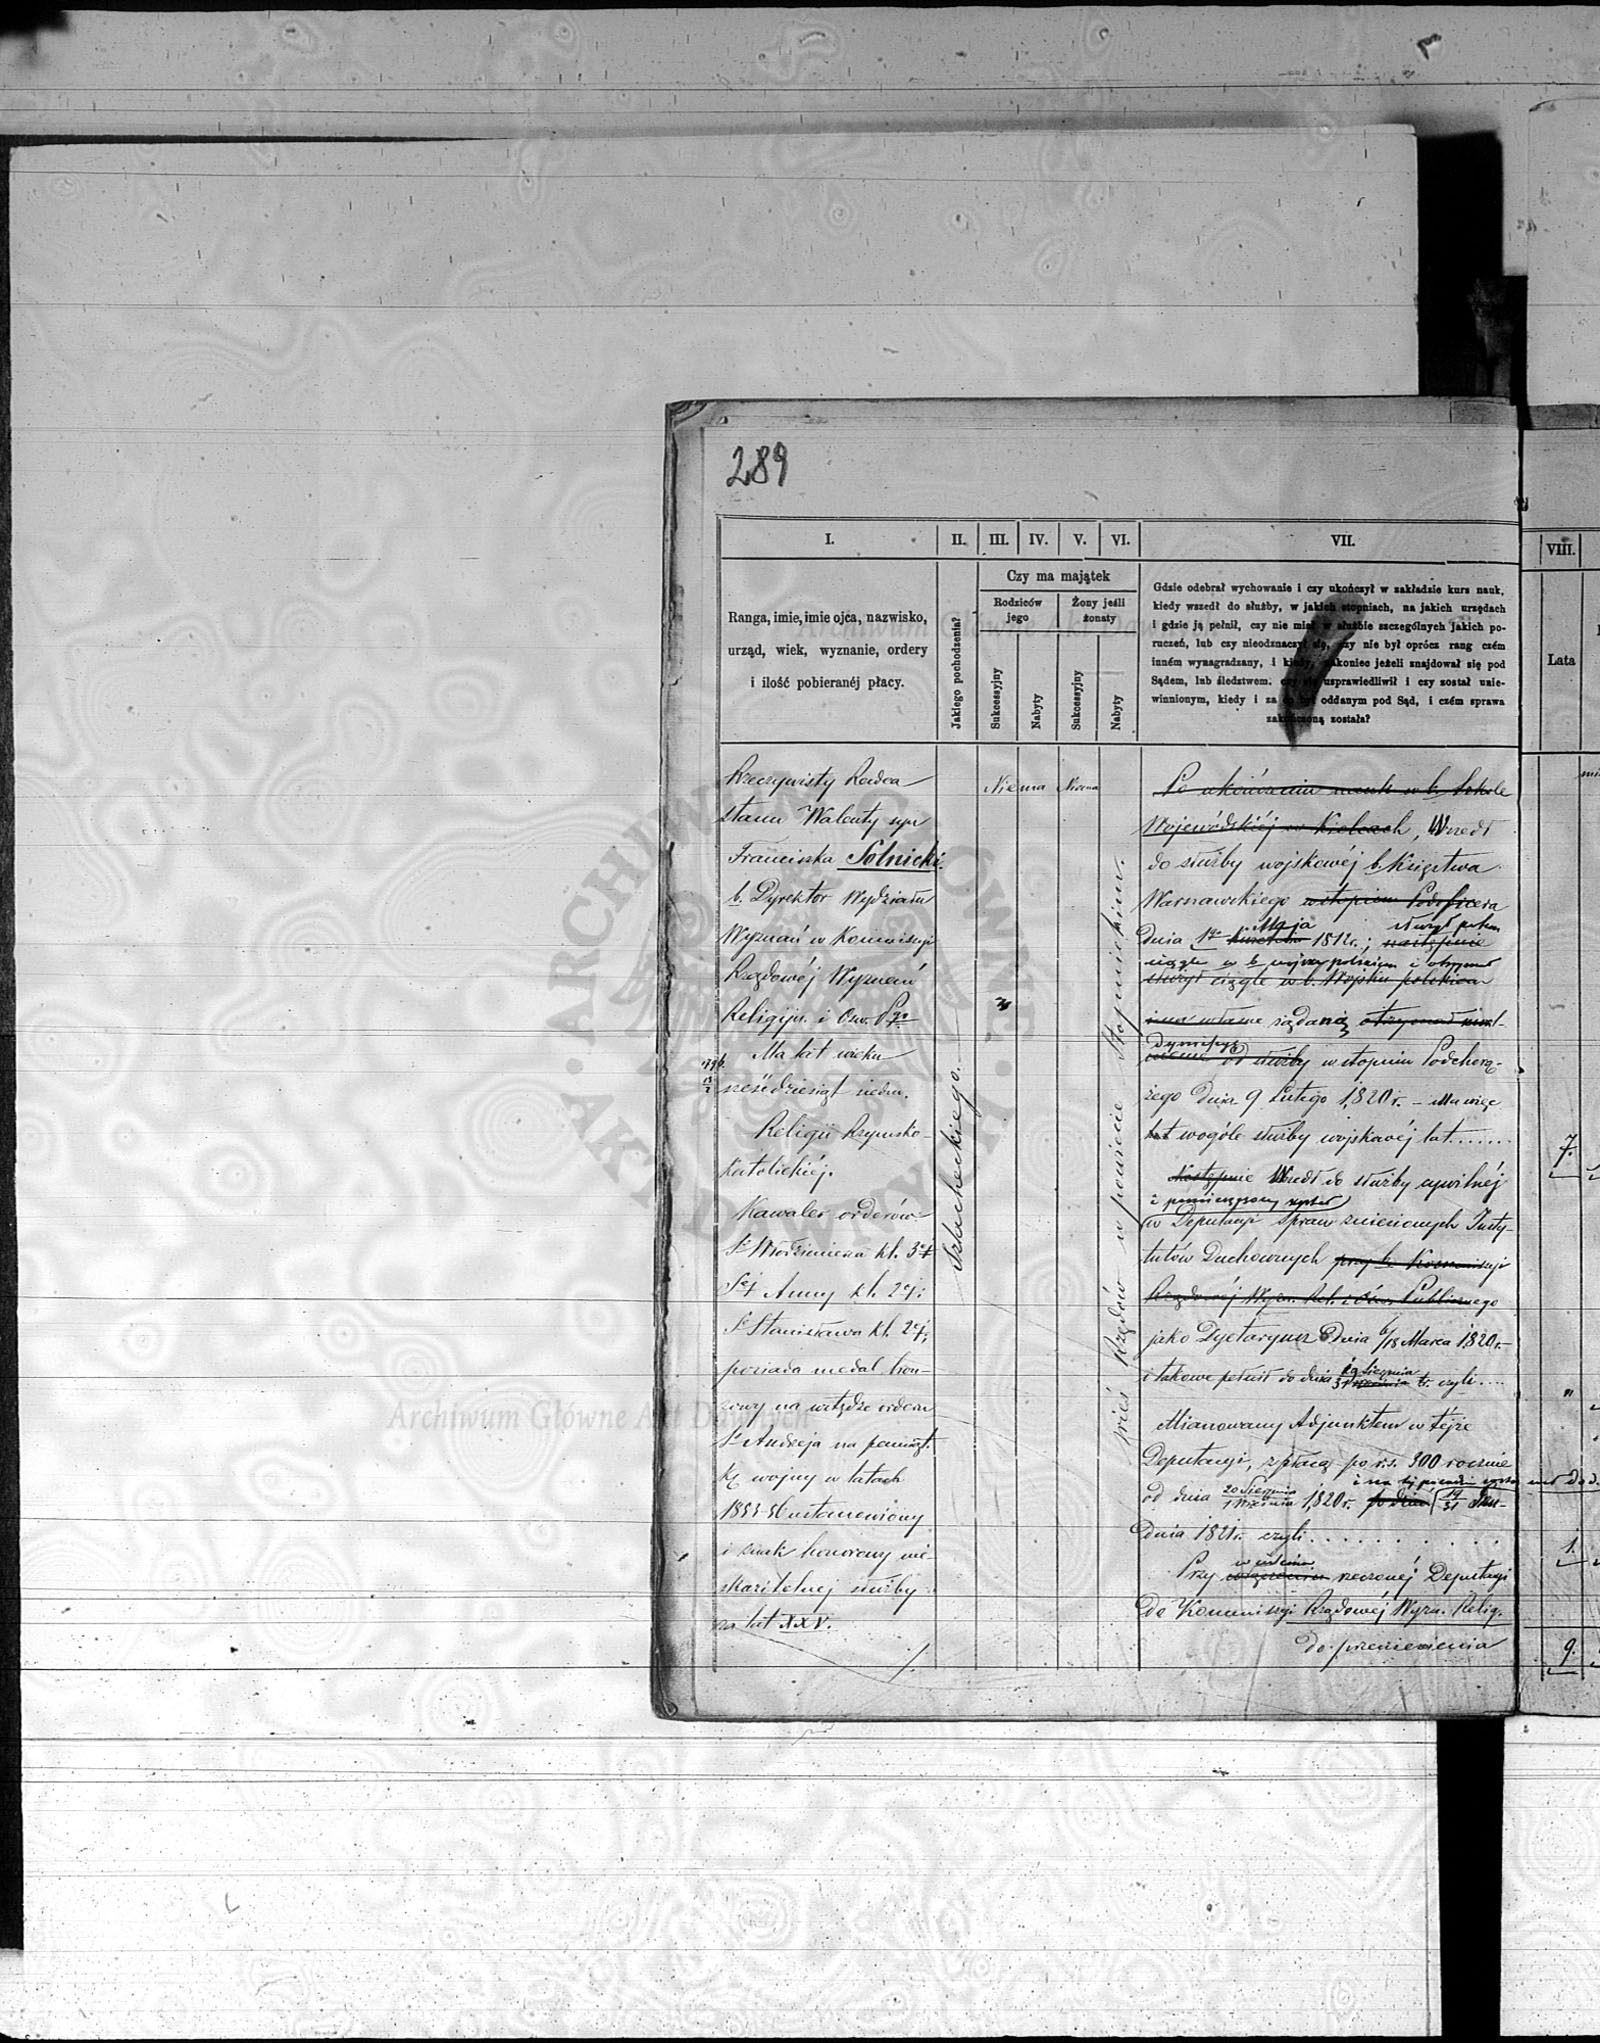 289
I. II. III. IV. V. VI. VII. VIII.
Ranga, imie, imie ojca, nazwisko,
urząd, wiek, wyznanie, ordery
i ilość pobieranéj płacy.
Jakiego pochodzenia?
Czy ma majątek
Rodziców
jego
Żony jeśli
żonaty
Sukcessyjny
Nabyty
Sukcessyjny
Nabyty
Gdzie odebrał wychowanie i czy ukończył w zakładzie kurs nauk,
kiedy wszedł do służby, w jakich stopniach, na jakich urzędach
i gdzie ją pełnił, czy nie miał w służbie szczególnych jakich po-
ruczeń, lub czy nieodznaczył się, czy nie był oprócz rang czém
inném wynagradzany, i kiedy, nakoniec jeżeli znajdował się pod
Sądem, lub śledztwem, czy się usprawiedliwił i czy został unie-
winnionym, kiedy i za co był oddanym pod Sąd, i czém sprawa
zakończoną została?
Lata
Rzeczywisty Radca
stanu Walenty syn
Franciszka Solnicki.
b. Dyrektor Wydziału
Wyznań w Komissyi
Rządowéj Wyznań
Religijn. i Ośw. P.go
Ma lat wieku
sześćdziesiąt siedm.
Religii Rzymsko-
Katolickiéj.
Kawaler orderów
St. Włodzimierza kl. 3ej
Stej Anny kl. 2ej;
St. Stanisława kl. 2ej;
posiada medal bron-
zowy na wstążce orderu
St. Andrzeja na pamiąt-
kę wojny w latach
1853-56 ustanowiony
i znak honorowy nie-
skazitelnej służby
za lat XXV.
Szlacheckiego.
Niema Niema
wieś Rządów w powiecie Stopnickim.
Po ukończeniu nauk w b. Szkole
Wojewódzkiéj w Kielcach, Wszedł
do służby wojskowéj b. Księstwa
Warszawskiego w stopniu Podoficera
Maja służył potem
Dnia 1go Kwietnia 1812 r.; następnie
ciągle w b. wojsku polskim i otrzymał
służył ciągle w b. Wojsku polskiem
i na własne żądanie otrzymał uwol-
Dymissyę
nienie od służby w stopniu Podchorą-
żego Dnia 9 Lutego 1820 r. – Ma więc
lat wogóle służby wojskowéj lat.......
7.
Następnie Wszedł do służby cywilnéj
w Deputacyi spraw zniesionych Insty-
tutów Duchownych przy b. Kommissyi
Rządowéj Wyzn. Rel. i Ośw. Publicznego
jako Dyetaryusz Dnia 6/18 Marca 1820 r.
19 Sierpnia
i takowe pełnił do dnia 31 tr. czyli....
"
Mianowany Adjunktem w tejże
Deputacyi, z płacą po r.s. 300 rocznie
od dnia 20 Sierpnia/1 Września 1820 r. po dzień 19/31 Gru-
dnia 1821 r. czyli . . . . . . . . . .
1.
Przy wcieleniu rzeczonéj Deputacyi
do Kommissyi Rządowéj Wyzn. Relig.
do przeniesienia
9.
ARCHIWUM GŁÓWNE AKT DAWNYCH
Archiwum Główne Akt Dawnych